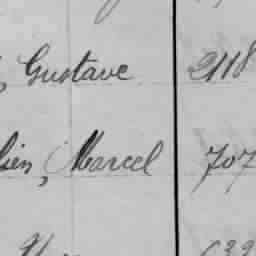 , Gustave 2118
sien, Marcel 707